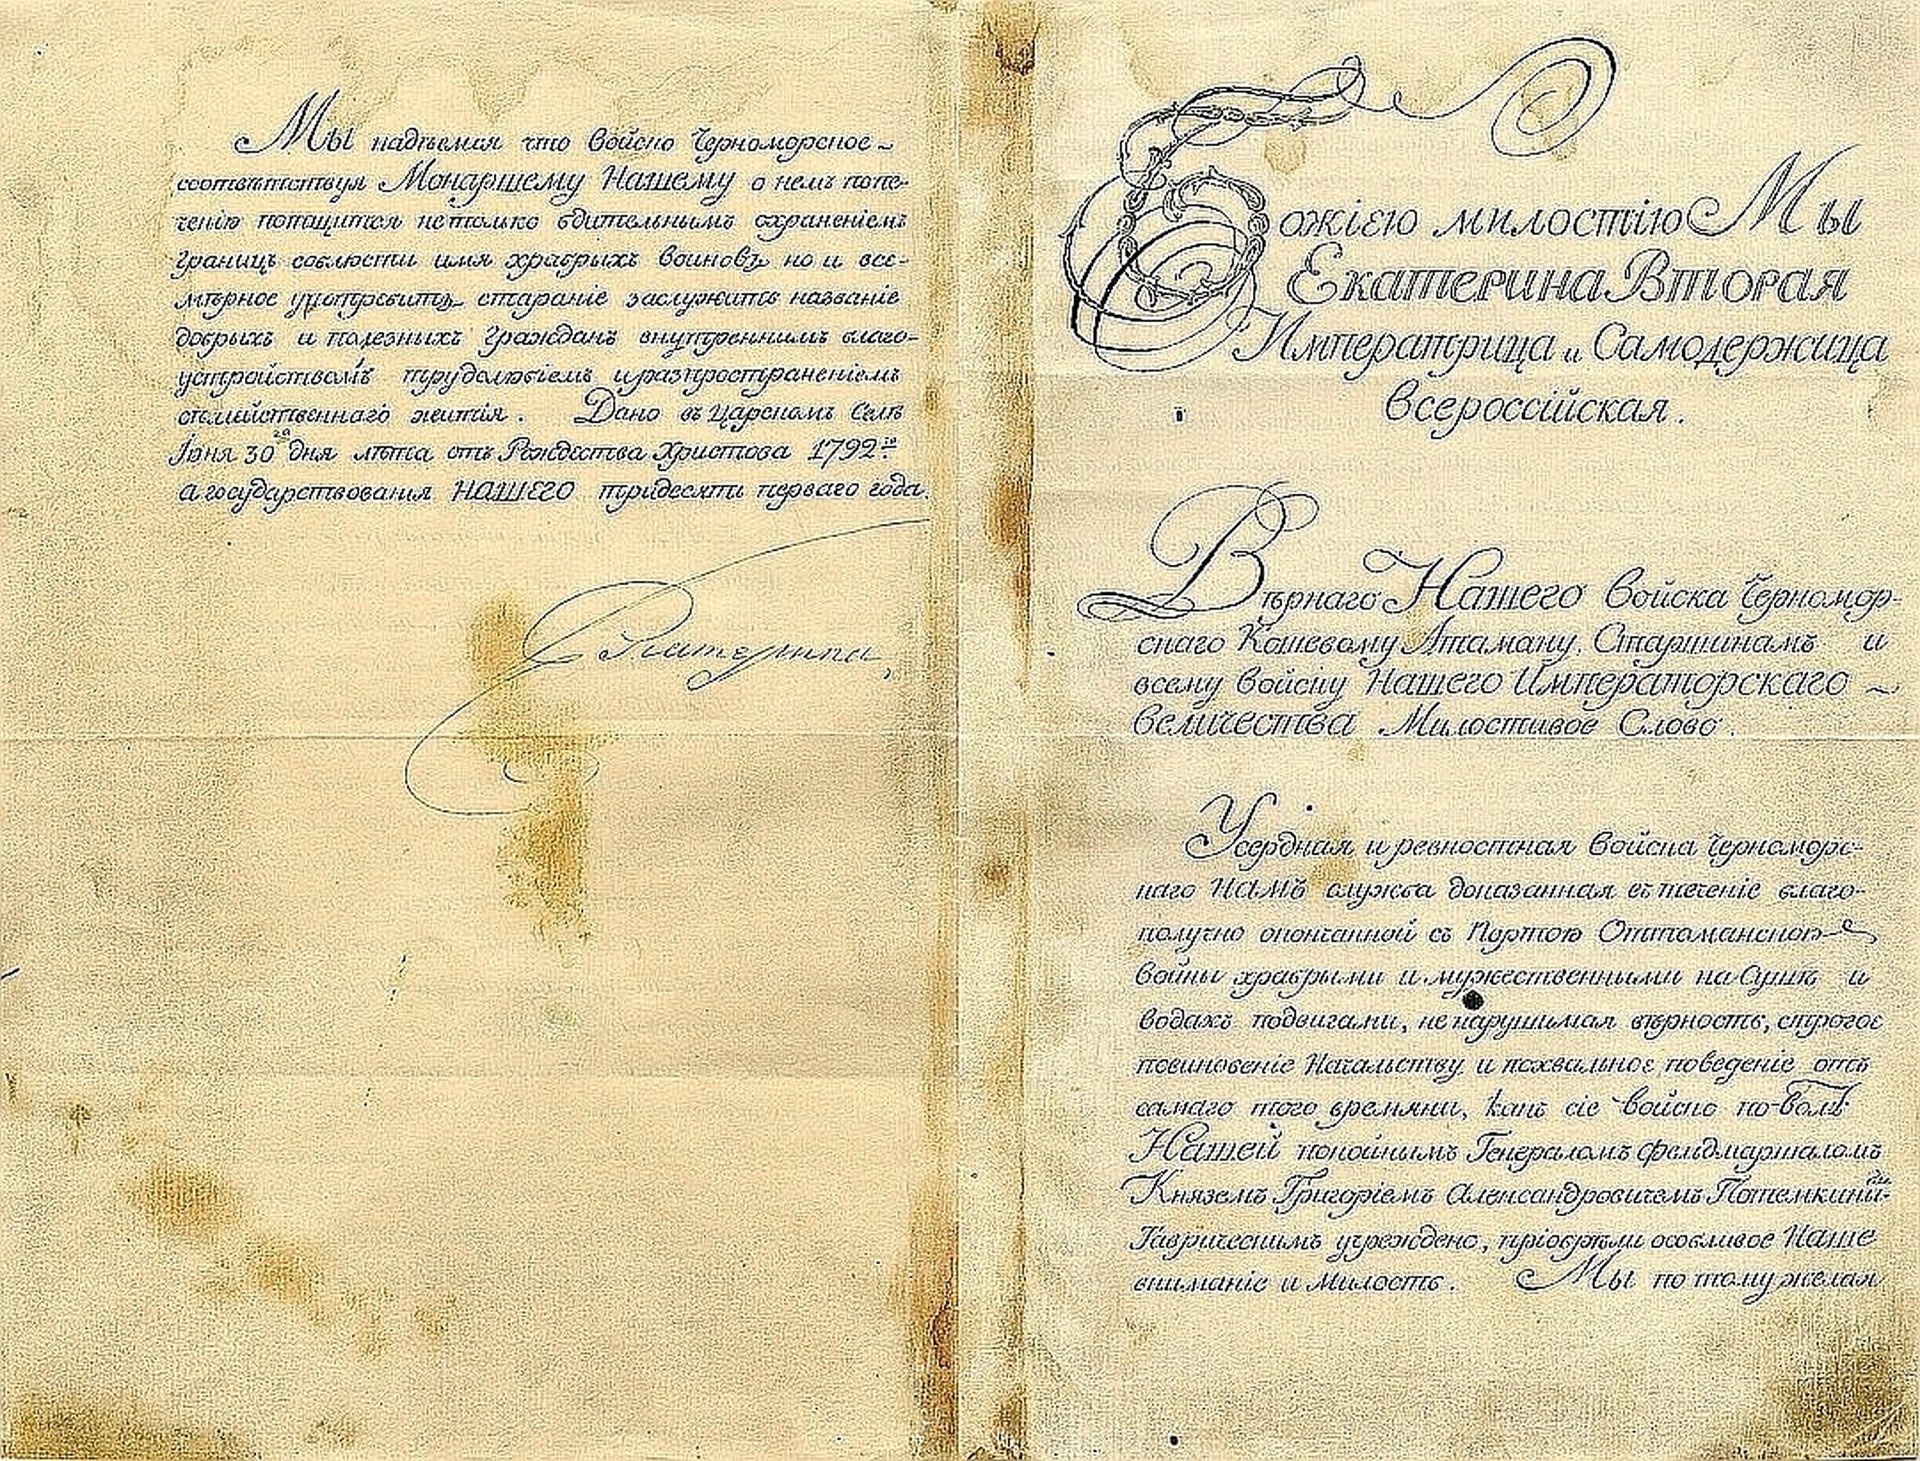 Мы надѣемся что войско Черноморское
соотвѣтствуя Монаршему Нашему о немъ попе-
ченію потщится нетолько бдительнымъ охраненіемъ
границъ соблюсти имя храбрыхъ воиновъ но и все-
мѣрное употребитъ стараніе заслужить названіе
добрыхъ и полезныхъ гражданъ внутреннимъ благо-
устройствомъ трудолюбіемъ и разпространеніемъ
сѣмейственнаго житія. Дано въ Царскомъ Селѣ
Іюня 30го дня лѣта отъ Рождества Христова 1792го
а государствованія НАШЕГО тридесять перваго года.
Екатерина
Божіею милостію Мы
Екатерина Вторая
Императрица и Самодержица
Всероссійская.
Вѣрнаго Нашего войска Черномор-
скаго Кошевому Атаману, Старшинамъ и
всему войску Нашего Императорскаго
величества Милостивое Слово.
Усердная и ревностная войска Черноморс-
каго НАМЪ служба доказанная въ теченіе благо-
получно оконченной съ Портою Оттоманскою
войны храбрыми и мужественными на Сушѣ и
водахъ подвигами, ненарушимая вѣрность, строгое
повиновеніе Начальству и похвальное поведеніе отъ
самаго того времяни, какъ сіе войско по волѣ
Нашей покойнымъ Генераломъ фельдмаршаломъ
Княземъ Григоріемъ Александровичемъ Потемкинымъ
Таврическимъ учреждено, пріобрѣли особливое Наше
вниманіе и Милость. Мы по тому желая